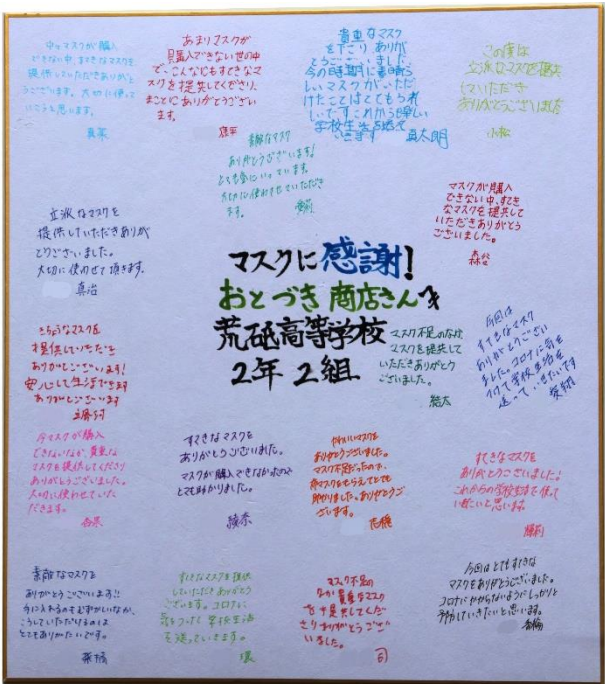 中々マスクが購入
できない中、すてきなマスクを
提供していただきありがと
うございます。大切に使って
いこうと思います。
あまりマスクが
購入できない世の中
で、こんなにもすてきなマ
スクを提供してくださり、
まことにありがとうございま
す。
貴重なマスク
を下さり ありが
とうございました。
今の時期に素晴ら
しいマスクがいただ
けたことはとてもうれ
しいです これからも楽しい
学校生活を送って
いきます
真太朗
この度は
立派なマスクを提供
していただき
ありがとうございました
小松
素敵なマスク
ありがとうございます!
とても気にいっています。
大切に使わせていただき
ます。
マスクが購入
できない中、すてき
なマスクを提供して
いただきありがとう
ございました。
森谷
立派なマスクを
提供していただきありが
とうございました。
大切に使わせて頂きます。
真治
マスクに感謝!
おとづき商店さんへ
荒砥高等学校
2年2組
マスク不足のなか、
マスクを提供して
いただきありがとう
ございました。
結太
今回は
すてきなマスク
ありがとうござい
ました。コロナに気を
つけて学校生活を
送って いきたいです
きちょうなマスクを
提供していただき
ありがとうございます!
安心して生活できます
ありがとうございます
今マスクが購入
できないなか、貴重な
マスクを提供してくださり
ありがとうございました。
大切に使わせていた
だきます。
すてきなマスクを
ありがとうございました。
マスクが購入できなかったので
とても助かりました。
綾奈
かわいいマスクを
ありがとうございました。
マスク不足だったので、
布マスクをもらえてとても
助かりました。ありがとうご
ざいます。
すてきなマスクを
ありがとうございました!
これからの学校生活で使って
いきたいと思います。
素敵なマスクを
ありがとうございます!!
手に入れるのもむずかしいなか、
こうしていただけるのは
とてもありがたいです。
すてきなマスクを提供
していただきありがとう
ございます。コロナに
気をつけて学校生活
を送っていきます。
マスク不足の
なか 貴重なマスク
を提供してくだ
さりありがとうござ
いました。
今回はとてもすてきな
マスクをありがとうございました。
コロナにかからないようにしっかりと
予防していきたいと思います。